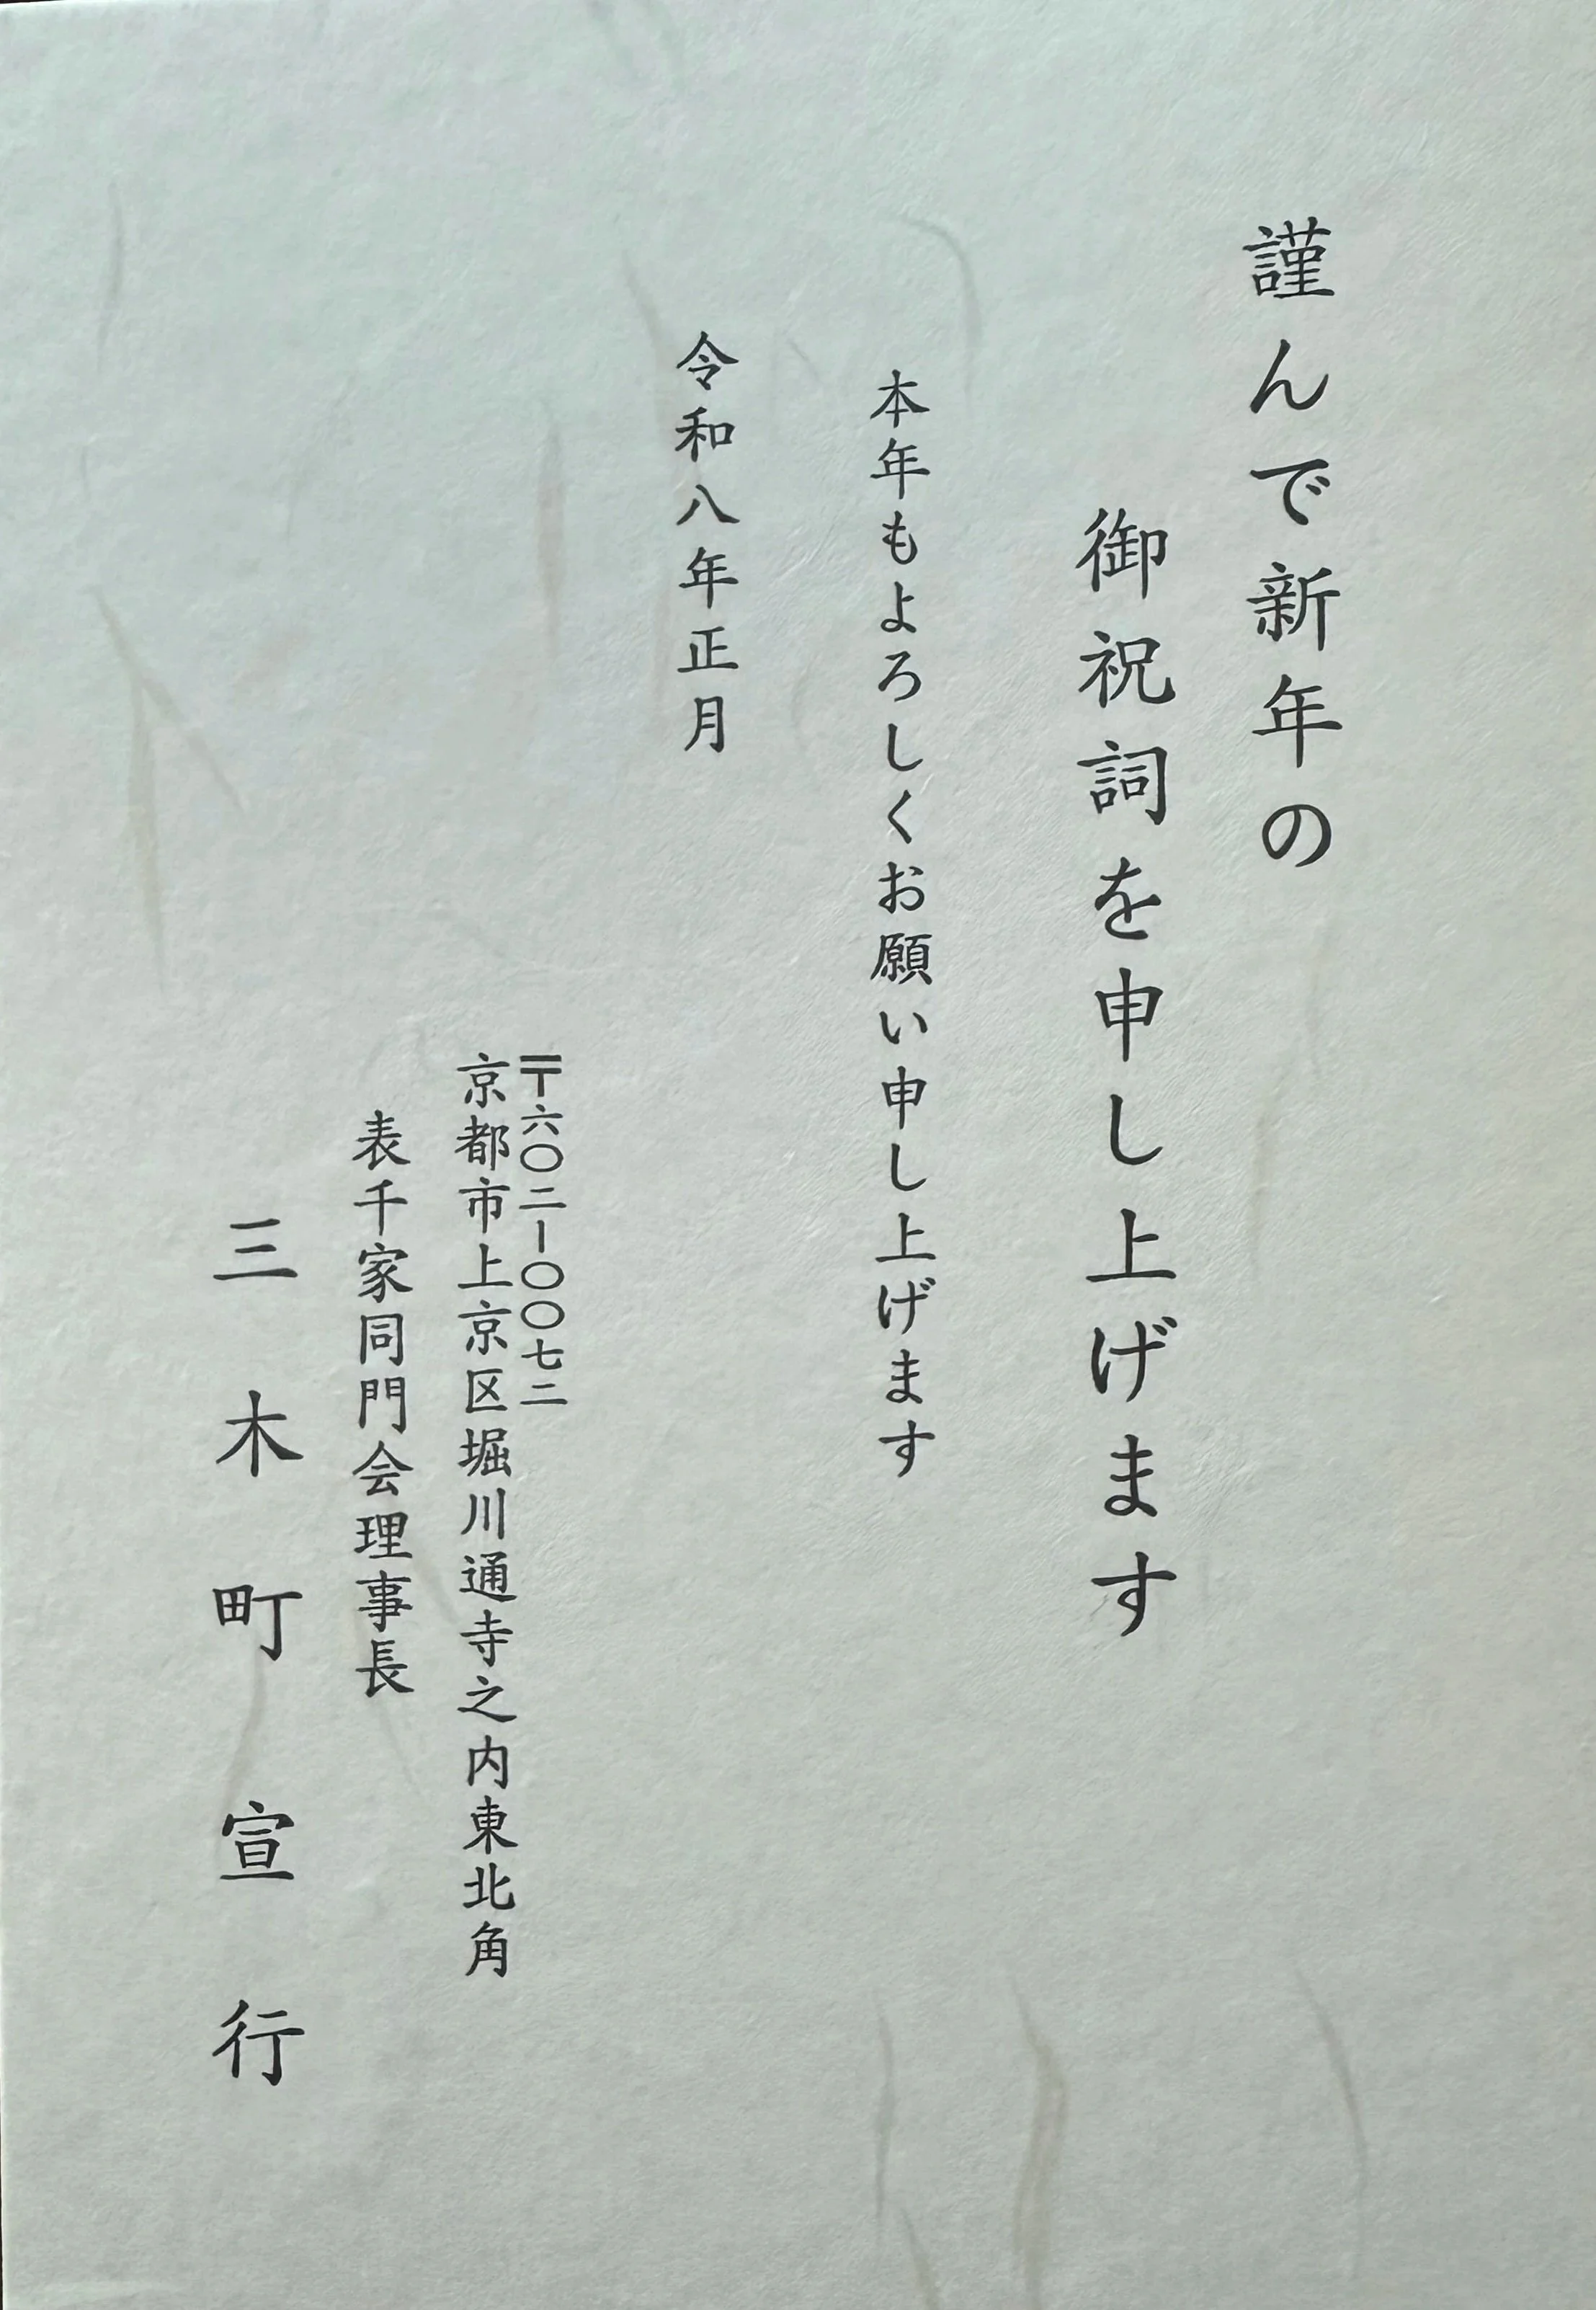 謹んで新年の
御祝詞を申し上げます
本年もよろしくお願い申し上げます
令和八年正月
〒六〇二-〇〇七二
京都市上京区堀川通寺之内東北角
表千家同門会理事長
三木町宣行